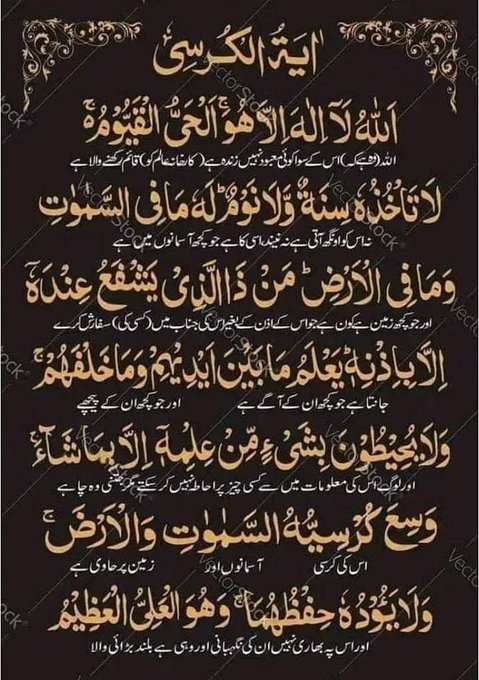 اٰیَةُ الْکُرْسِیْ
اَللّٰهُ لَاۤ اِلٰهَ اِلَّا هُوَ ۚ اَلْحَیُّ الْقَیُّوْمُ ۚ
اللہ (وہ ہے کہ) اس کے سوا کوئی معبود نہیں زندہ ہے (کارخانہ عالم کو) قائم رکھنے والا ہے
لَا تَاْخُذُهٗ سِنَةٌ وَّلَا نَوْمٌ ؕ لَهٗ مَا فِی السَّمٰوٰتِ
نہ اس کو اونگھ آتی ہے نہ نیند، اسی کا ہے جو کچھ آسمانوں میں ہے
وَمَا فِی الْاَرْضِ ؕ مَنْ ذَا الَّذِیْ یَشْفَعُ عِنْدَهٗ
اور جو کچھ زمین ہے کون ہے جو اس کے اذن کے بغیر اس کی جناب میں (کسی کی) سفارش کرے
اِلَّا بِاِذْنِهٖ ؕ یَعْلَمُ مَا بَیْنَ اَیْدِیْهِمْ وَمَا خَلْفَهُمْ ۚ
جانتا ہے جو کچھ ان کے آگے ہے اور جو کچھ ان کے پیچھے
وَلَا یُحِیْطُوْنَ بِشَیْءٍ مِّنْ عِلْمِهٖۤ اِلَّا بِمَا شَآءَ ۚ
اور لوگ اس کی معلومات میں سے کسی چیز پر احاطہ نہیں کر سکتے مگر جتنی وہ چاہے
وَسِعَ کُرْسِیُّهُ السَّمٰوٰتِ وَالْاَرْضَ ۚ
اس کی کرسی آسمانوں اور زمین پر حاوی ہے
وَلَا یَـُٔوْدُهٗ حِفْظُهُمَا ۚ وَهُوَ الْعَلِیُّ الْعَظِیْمُ
اور اس پہ بھاری نہیں ان کی نگہبانی اور وہی ہے بلند بڑائی والا
VectorStock